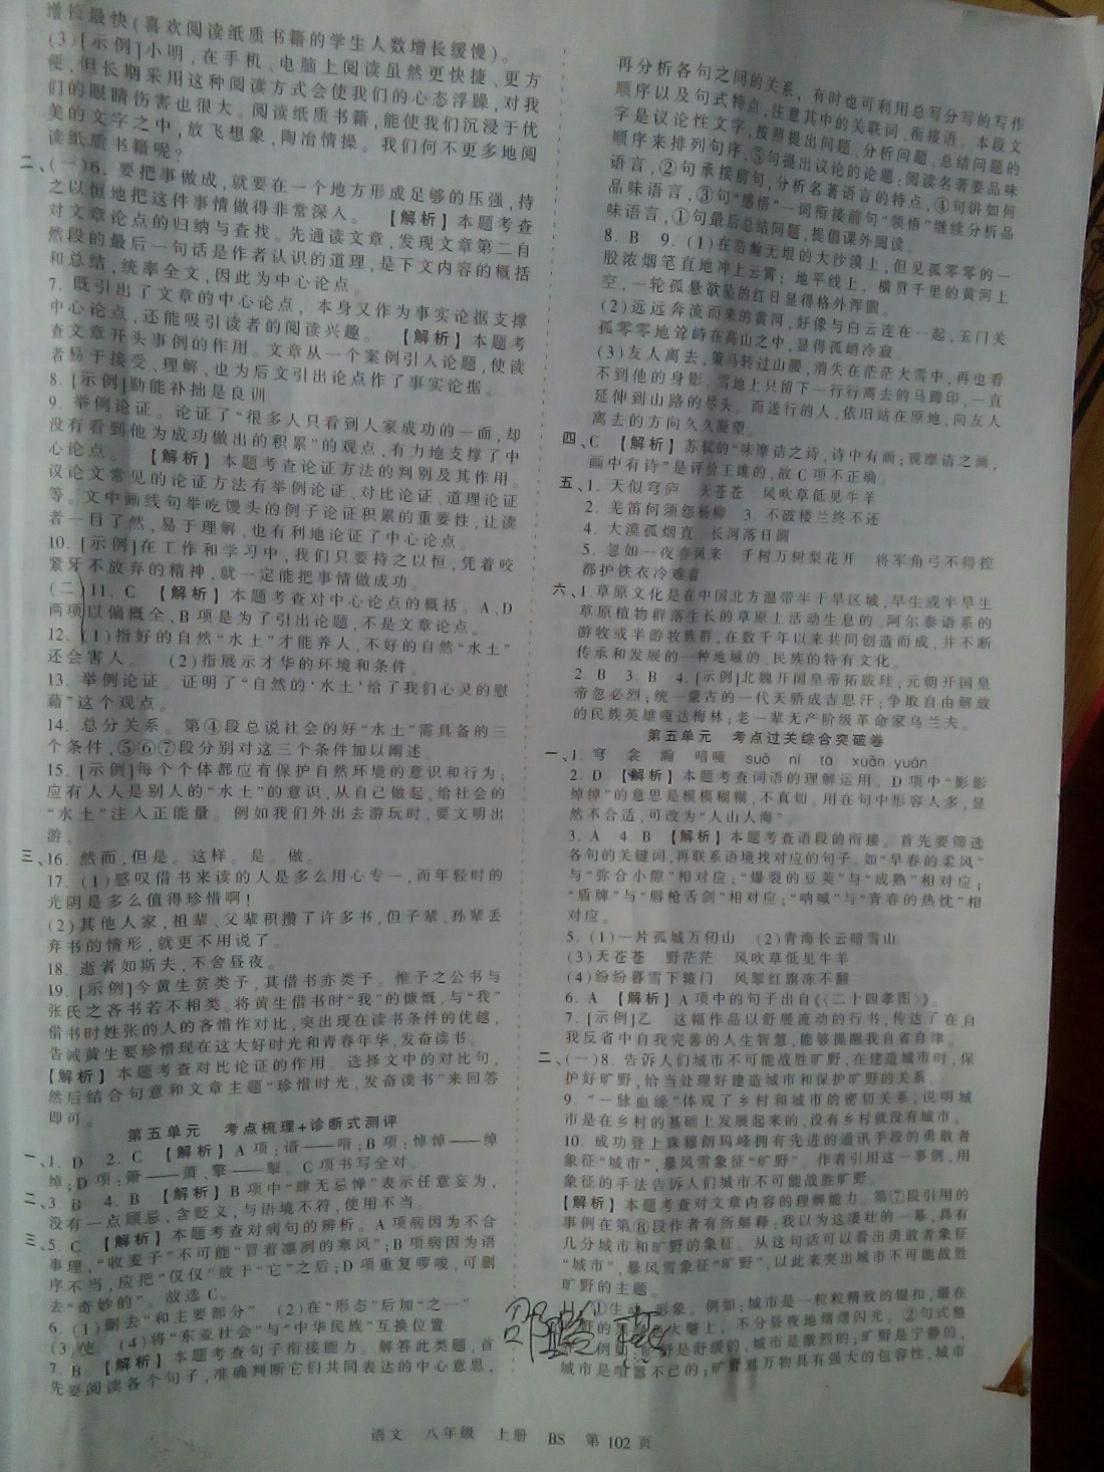 增长最快(喜欢阅读纸质书籍的学生人数增长缓慢)。
(3)[示例]小明,在手机、电脑上阅读虽然更快捷、更方
便,但长期采用这种阅读方式会使我们的心态浮躁,对我
们的眼睛伤害也很大。阅读纸质书籍,能使我们沉浸于优
美的文字之中,放飞想象,陶冶情操。我们何不更多地阅
读纸质书籍呢?
二、(一)6. 要把事做成,就要在一个地方形成足够的压强,持
之以恒地把这件事情做得非常深入。 【解析】本题考查
对文章论点的归纳与查找。先通读文章,发现文章第二自
然段的最后一句话是作者认识的道理,是下文内容的概括
和总结,统率全文,因此为中心论点。
7. 既引出了文章的中心论点,本身又作为事实论据支撑
中心论点,还能吸引读者的阅读兴趣。 【解析】本题考
查文章开头事例的作用。文章从一个案例引入论题,使读
者易于接受、理解,也为后文引出论点作了事实论据。
8. [示例]勤能补拙是良训
9. 举例论证。论证了“很多人只看到人家成功的一面,却
没有看到他为成功做出的积累”的观点,有力地支撑了中
心论点。 【解析】本题考查论证方法的判别及其作用。
议论文常见的论证方法有举例论证、对比论证、道理论证
等。文中画线句举吃馒头的例子论证积累的重要性,让读
者一目了然,易于理解,也有利地论证了中心论点。
10. [示例]在工作和学习中,我们只要持之以恒,凭着咬
紧牙不放弃的精神,就一定能把事情做成功。
(二)11. C 【解析】本题考查对中心论点的概括。A、D
两项以偏概全、B项是为了引出论题,不是文章论点。
12. (1)指好的自然“水土”才能养人,不好的自然“水土”
还会害人。 (2)指展示才华的环境和条件。
13. 举例论证。证明了“自然的‘水土’给了我们心灵的慰
藉”这个观点。
14. 总分关系。第④段总说社会的好“水土”需具备的三
个条件,⑤⑥⑦段分别对这三个条件加以阐述。
15. [示例]每个个体都应有保护自然环境的意识和行为;
应有人人是别人的“水土”的意识,从自己做起,给社会的
“水土”注入正能量。例如我们外出去游玩时,要文明出
游。
三、16. 然而,但是。这样。是。做。
17. (1)感叹借书来读的人是多么用心专一,而年轻时的
光阴是多么值得珍惜啊!
(2)其他人家,祖辈、父辈积攒了许多书,但子辈、孙辈丢
弃书的情形,就更不用说了。
18. 逝者如斯夫,不舍昼夜。
19. [示例]今黄生贫类予,其借书亦类予。惟予之公书与
张氏之吝书若不相类。将黄生借书时“我”的慷慨,与“我”
借书时姓张的人的吝惜作对比,突出现在读书条件的优越,
告诫黄生要珍惜现在这大好时光和青春年华,发奋读书。
【解析】本题考查对比论证的作用。选择文中的对比句,
然后结合句意和文章主题“珍惜时光,发奋读书”来回答
即可。
第五单元 考点梳理+诊断式测评
一、1. D 2. C 【解析】A项:谙——喑;B项:悼悼——绰
绰;D项:箫——萧、擎——掣。C项书写全对。
二、3 B 4. B 【解析】B项中“肆无忌惮”表示任意妄为,
没有一点顾忌,含贬义,与语境不符,使用不当。
三、5. C 【解析】本题考查对病句的辨析。A项病因为不合
事理,“收麦子”不可能“冒着凛冽的寒风”;B项病因为语
序不当,应把“仅仅”放于“它”之后;D项重复啰唆,可删
去“奇妙的”。故选C。
6. (1)删去“和主要部分” (2)在“形态”后加“之一”
(3)使 (4)将“东亚社会”与“中华民族”互换位置
7. B 【解析】本题考查句子衔接能力。解答此类题,首
先要阅读各个句子,准确判断它们共同表达的中心意思,
再分析各句之间的关系,有时也可利用总写分写的写作
顺序以及句式特点,注意其中的关联词、衔接语。本段文
字是议论性文字,按照提出问题、分析问题、总结问题的
顺序来排列句序,⑤句提出议论的论题:阅读名著要品味
语言,②句承接前句,分析名著语言的特点,④句讲如何
品味语言,③句“感悟”一词衔接前句“领悟”继续分析品
味语言,①句最后总结问题,提倡课外阅读。
8. B 9. (1)在浩瀚无垠的大沙漠上,但见孤零零的一
股浓烟笔直地冲上云霄;地平线上,横贯千里的黄河上
空,一轮孤悬欲坠的红日显得格外浑圆。
(2)远远奔流而来的黄河,好像与白云连在一起,玉门关
孤零零地耸峙在高山之中,显得孤峭冷寂。
(3)友人离去,策马转过山腰,消失在茫茫大雪中,再也看
不到他的身影,雪地上只留下一行行离去的马蹄印,一直
延伸到山路的尽头。而送行的人,依旧站在原地,向友人
离去的方向久久凝望。
四、C 【解析】苏轼的“味摩诘之诗,诗中有画;观摩诘之画,
画中有诗”是评价王维的,故C项不正确。
五、1. 天似穹庐 天苍苍 风吹草低见牛羊
2. 羌笛何须怨杨柳 3. 不破楼兰终不还
4. 大漠孤烟直 长河落日圆
5. 忽如一夜春风来 千树万树梨花开 将军角弓不得控
都护铁衣冷难着
六、1. 草原文化是在中国北方温带半干旱区域,旱生或半旱生
草原植物群落生长的草原上活动生息的、阿尔泰语系的
游牧或半游牧族群,在数千年以来共同创造而成,并不断
传承和发展的一种地域的、民族的特有文化。
2 B 3. B 4. [示例]北魏开国皇帝拓跋珪;元朝开国皇
帝忽必烈;统一蒙古的一代天骄成吉思汗;争取自由解放
的民族英雄嘎达梅林;老一辈无产阶级革命家乌兰夫。
第五单元 考点过关综合突破卷
一、1. 穹 衾 瀚 喑哑 suō nì tà xuān yuán
2. D 【解析】本题考查词语的理解运用。D项中“影影
绰绰”的意思是模模糊糊,不真切。用在句中形容人多,显
然不合适,可改为“人山人海”。
3. A 4. B 【解析】本题考查语段的衔接。首先要筛选
各句的关键词,再联系语境找对应的句子。如“早春的柔风”
与“弥合小隙”相对应;“爆裂的豆荚”与“成熟”相对应;
“盾牌”与“唇枪舌剑”相对应;“呐喊”与“青春的热忱”相
对应。
5. (1)一片孤城万仞山 (2)青海长云暗雪山
(3)天苍苍 野茫茫 风吹草低见牛羊
(4)纷纷暮雪下辕门 风掣红旗冻不翻
6. A 【解析】A项中的句子出自《《二十四孝图》》。
7. [示例]乙 这幅作品以舒展流动的行书,传达了在自
我反省中自我完善的人生智慧,能够提醒我自省自律。
二、(一)8. 告诉人们城市不可能战胜旷野,在建造城市时,保
护好旷野,恰当处理好建造城市和保护旷野的关系。
9. “一脉血缘”体现了乡村和城市的密切关系,说明城
市是在乡村的基础上发展起来的,没有乡村就没有城市。
10. 成功登上珠穆朗玛峰拥有先进的通讯手段的勇敢者
象征“城市”,暴风雪象征“旷野”。作者引用这一事例,用
象征的手法告诉人们城市不可能战胜旷野。
【解析】本题考查对文章内容的理解能力。第⑦段引用的
事例在第⑧段作者有所解释:我以为这凄壮的一幕,具有
几分城市和旷野的象征。从这句话可以看出勇敢者象征
“城市”,暴风雪象征“旷野”,以此来突出城市不可能战胜
旷野的主题。
11. ①生动、形象。例如:城市是一粒粒精致的银扣,缀在
旷野的 大氅上,不分昼夜地熠熠闪光。②句式整
例如:旷野是舒缓的,城市是激烈的;旷野是宁静的,
城市是喧嚣不已的;旷野对万物具有强大的包容性,城市
语文 八年级 上册 BS 第102页